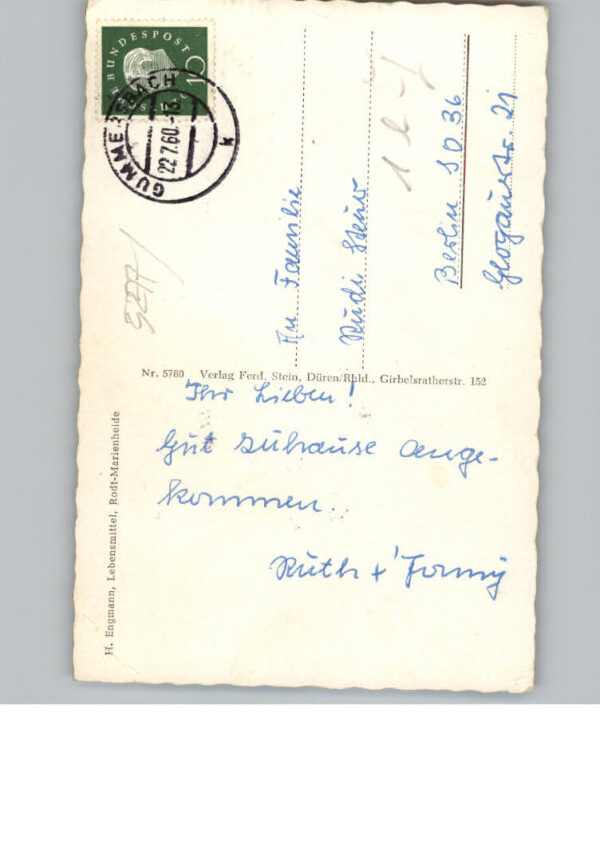 BUNDESPOST
10
GUMMERSBACH
22.7.60.-13
k
An Familie
Rudi
Berlin SO 36
Glogauerstr. 21
Nr. 5780 Verlag Ferd. Stein, Düren/Rhld., Girbelsratherstr. 152
H. Engmann, Lebensmittel, Rodt-Marienheide
Ihr Lieben!
Gut zuhause ange-
kommen.
Ruth +